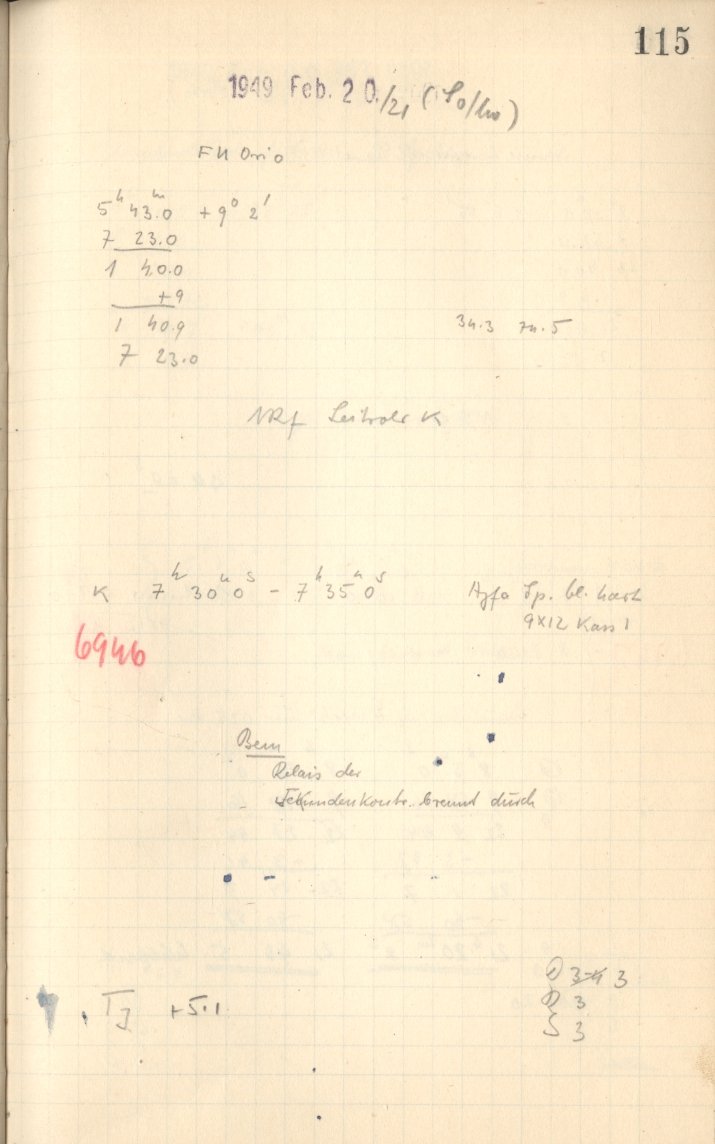 115
1949 Feb. 20./21 (So/Mo)
FU Orio
5ʰ 43.ᵐ0 +9° 2'
7 23.0
1 40.0
+9
1 40.9
34.3 74.5
7 23.0
NRf Leitrohr K
K 7ʰ 30ᵐ 0ˢ - 7ʰ 35ᵐ 0ˢ Agfa Sp. bl. hart
9X12 Kass 1
6946
Bem
Relais der
Sekundenkontr. brennt durch
D 3-4 3
TJ +5.1
D 3
S 3